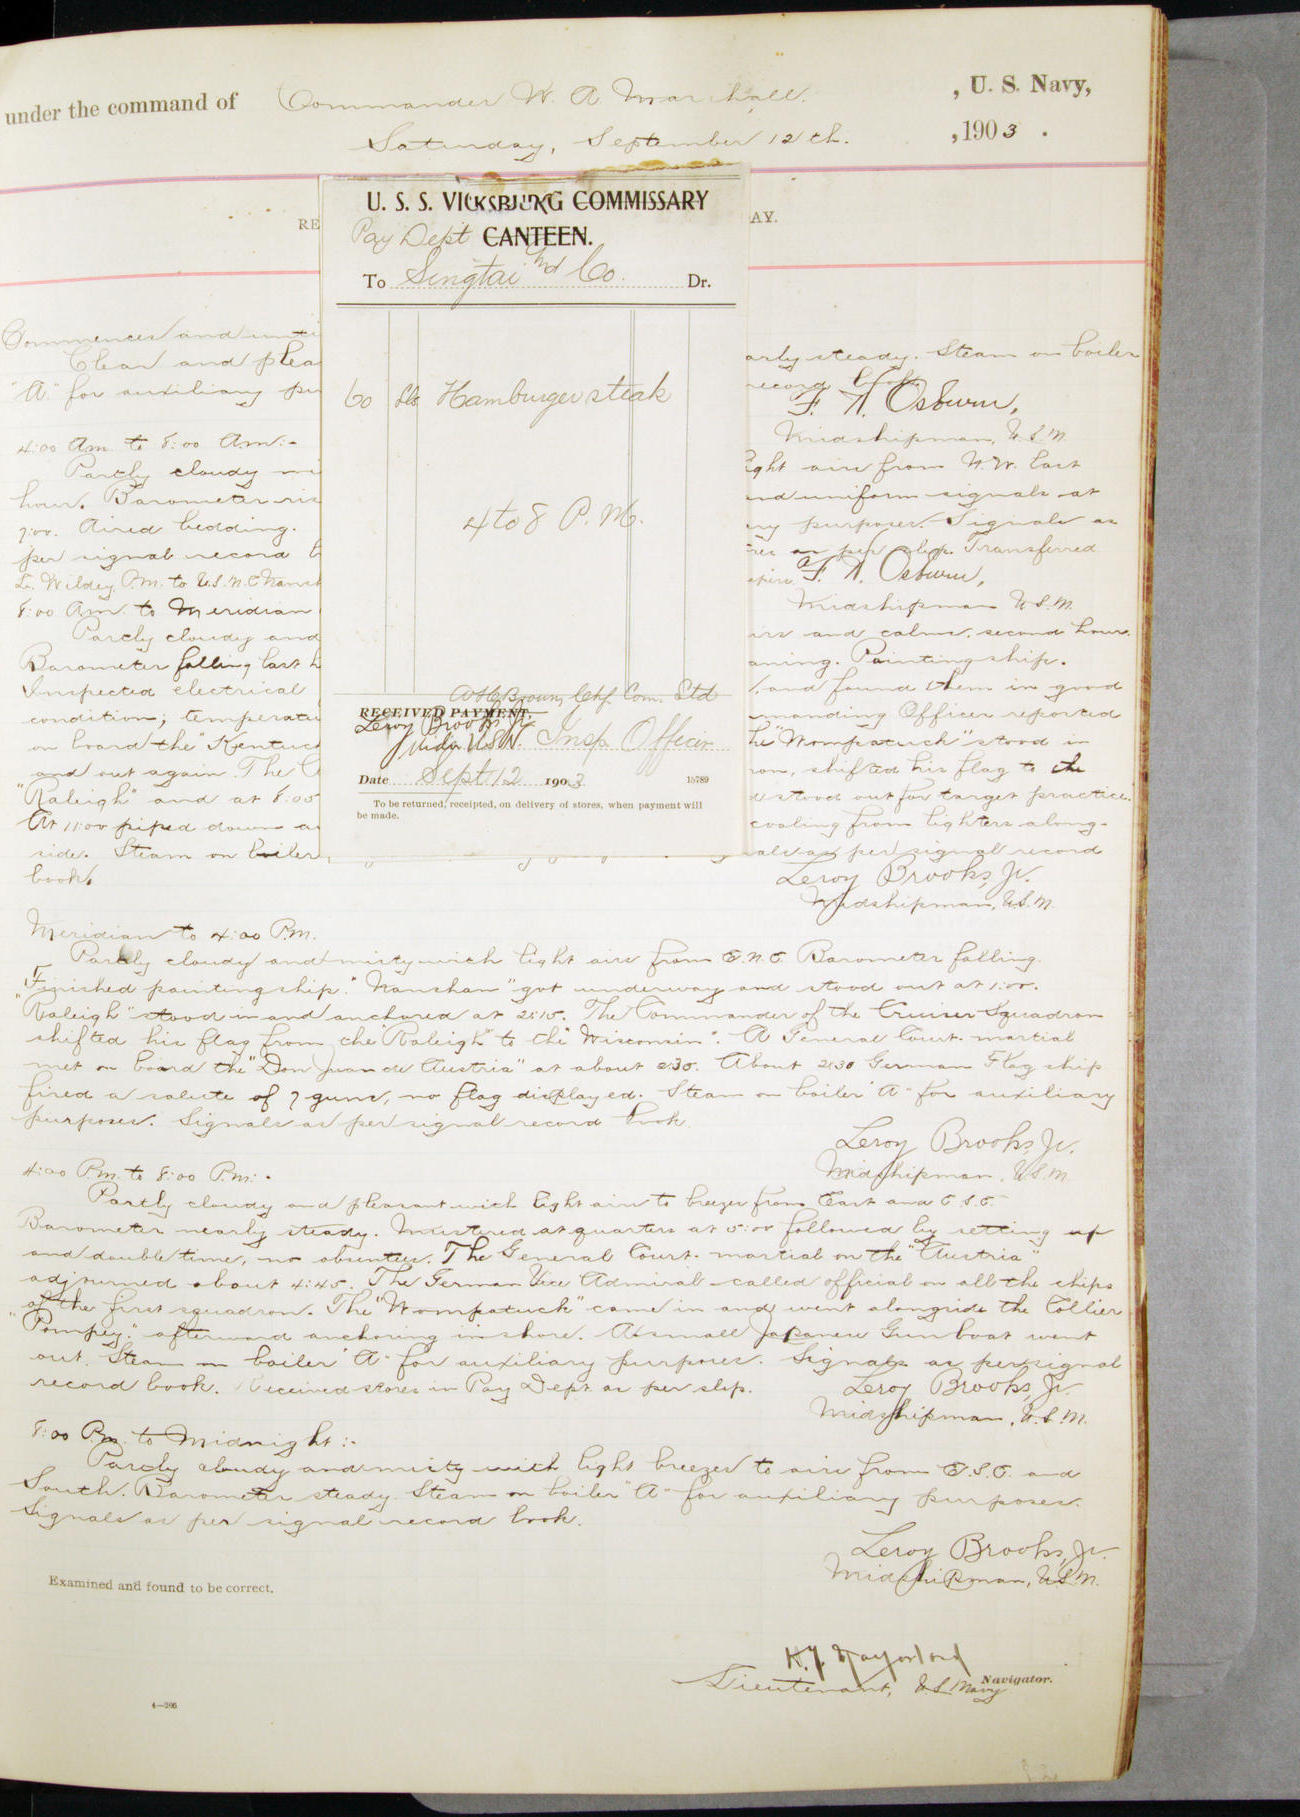 under the command of Commander W. A. Marshall. , U. S. Navy,
Saturday, September 12th. , 1903 .
RE
AY.
U. S. S. VICKSBURG COMMISSARY
Pay Dept CANTEEN.
To Singtai and Co. Dr.
60 lbs Hamburger steak
4 to 8 P. M.
Brown, Chf. Com. Std
RECEIVED PAYMENT,
Leroy Brooks Jr
Midn. USN. Insp. Officer
Date Sept. 12 1903 15789
To be returned, receipted, on delivery of stores, when payment will
be made.
Commences and unti
Clear and plea arly steady. Steam on boiler
"A" for auxiliary pur record book.
F. A. Osburn,
Midshipman, U.S.N.
4:00 Am. to 8:00 Am:-
Partly cloudy mi ight airs from N.W. last
hour. Barometer ris and uniform signals at
7:00. Aired bedding. ary purposes. Signals as
per signal record b res as per slip. Transferred
L. Wildey, P.M. to U.S.N.C. Nansh
F. A. Osburn,
Midshipman U.S.N.
8:00 Am. to Meridian
Partly cloudy and irs and calms, second hour.
Barometer falling last h aning. Painting ship.
Inspected electrical , and found them in good
condition; temperatu manding Officer reported
on board the "Kentuck he "Wompatuck" stood in
and out again. The C ron, shifted his flag to the
"Raleigh" and at 8:05 d stood out for target practice.
At 11:00 piped down coaling from lighters along-
side. Steam on boiler als as per signal record
book.
Leroy Brooks, Jr.
Midshipman, U.S.N.
Meridian to 4:00 P.m.
Partly cloudy and misty with light airs from E.N.E. Barometer falling.
Finished painting ship. "Nanshan" got underway and stood out at 1:00.
"Raleigh" stood in and anchored at 2:15. The Commander of the Cruiser Squadron
shifted his flag from the "Raleigh" to the "Wisconsin". A General Court-martial
met on board the "Don Juan de Austria" at about 2:30. About 2:30 German Flag ship
fired a salute of 7 guns, no flag displayed. Steam on boiler "A" for auxiliary
purposes. Signals as per signal record book.
Leroy Brooks, Jr.
Midshipman, U.S.N.
4:00 P.m. to 8:00 P.m:-
Partly cloudy and pleasant with light airs to breezes from East and E.S.E.
Barometer nearly steady. Mustered at quarters at 5:00 followed by setting up
and double time, no absentees. The General Court-martial on the "Austria"
adjourned about 4:45. The German Vice Admiral called official on all the ships
of the first squadron. The "Wompatuck" came in and went alongside the Collier
"Pompey." afterward anchoring in shore. A small Japanese Gunboat went
out. Steam on boiler "A" for auxiliary purposes. Signals as per signal
record book. Received stores in Pay Dept. as per slip.
Leroy Brooks, Jr.
Midshipman, U.S.N.
8:00 P.m. to Midnight:-
Partly cloudy and misty with light breezes to airs from E.S.E. and
South. Barometer steady. Steam on boiler "A" for auxiliary purposes.
Signals as per signal record book.
Leroy Brooks, Jr.
Midshipman, U.S.N.
Examined and found to be correct.
Lieutenant, U.S. Navy Navigator.
4—206